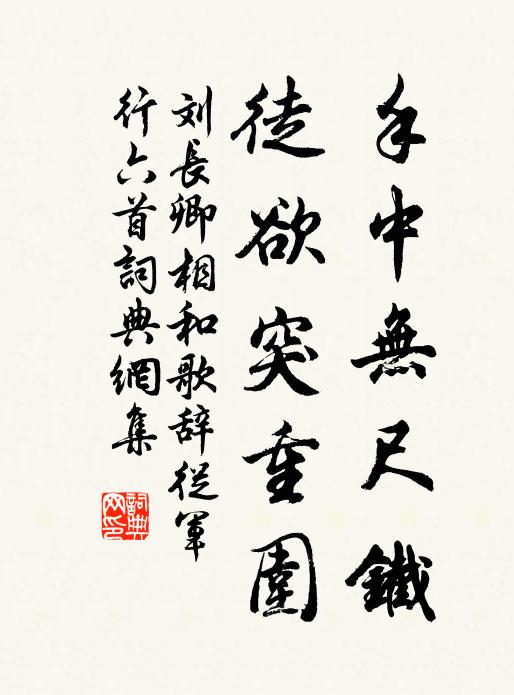 手中無尺鐵
徒欲突重圍
刘長卿相和歌辞從軍
行六首詞典網集
詞典网印